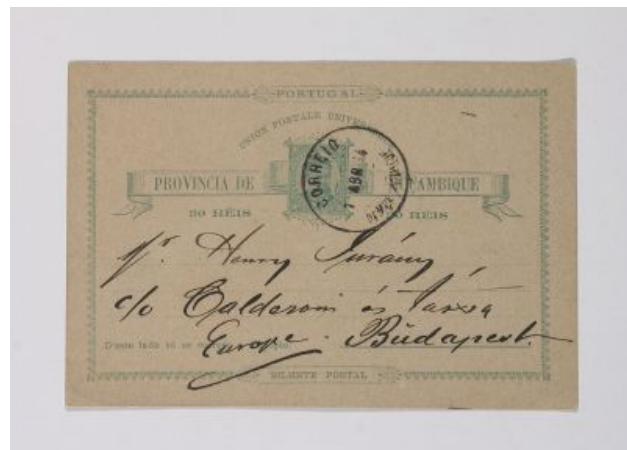 PORTUGAL
UNION POSTALE UNIVER
CORREIO
1 ABR
PROVINCIA DE AMBIQUE
30 REIS 30 REIS
Mr. Henry Surány
c/o Calderoni és társa
Europe. Büdapest.
D'este lado só se
BILHETE POSTAL